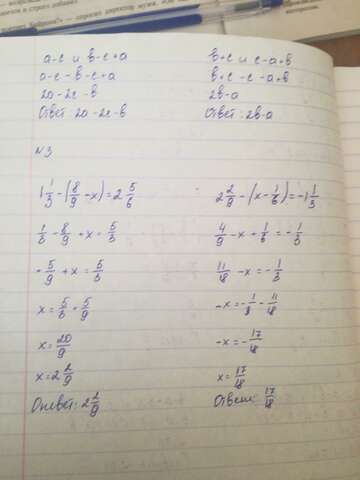 a-c и b-c+a
a-c-b-c+a
2a-2c-b
Ответ: 2a-2c-b
b+c и c-a+b
b+c-c-a+b
2b-a
Ответ: 2b-a
№3
1 1/3-(8/9-x)=2 5/6
1/3-8/9+x=5/3
-5/9+x=5/3
x=5/3+5/9
x=20/9
x=2 2/9
Ответ: 2 2/9
2 2/9-(x-1/6)=-1 1/3
4/9-x+1/6=-1/3
11/18-x=-1/3
-x=-1/3-11/18
-x=-17/18
x=17/18
Ответ: 17/18